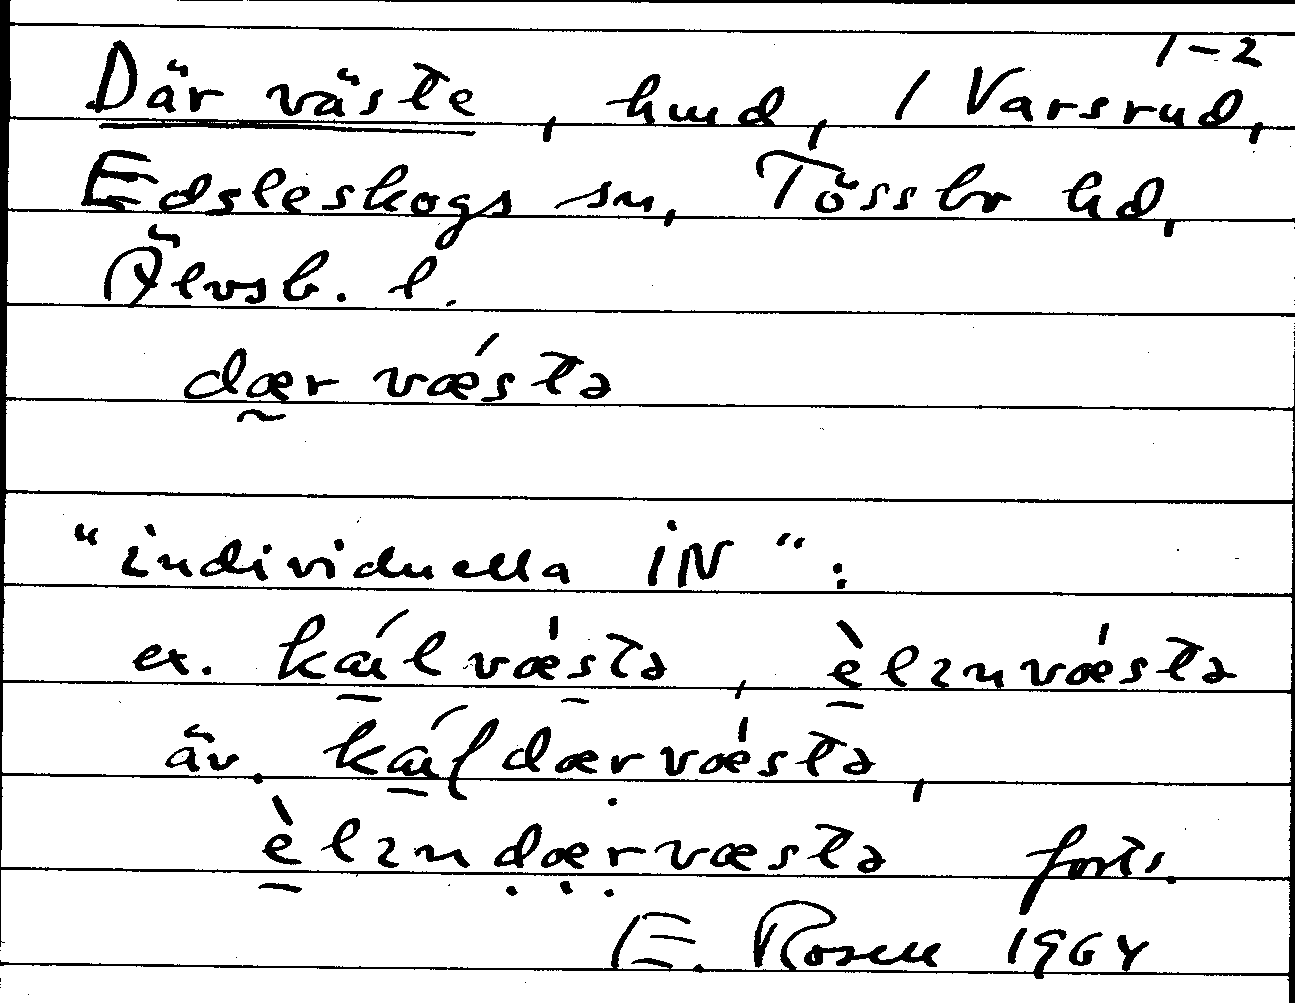 1-2
Där väste, hmd, / Varsrud,
Edsleskogs sn, Tössbo hd,
Älvsb. l.
dær vǽstə
"individuella IN":
ex. ká̱lvæ̍stə, è̱lɪnvæ̍stə
äv. ká̱ldærvæ̍stə,
è̱lɪndærvæstə forts.
E. Rosell 1964